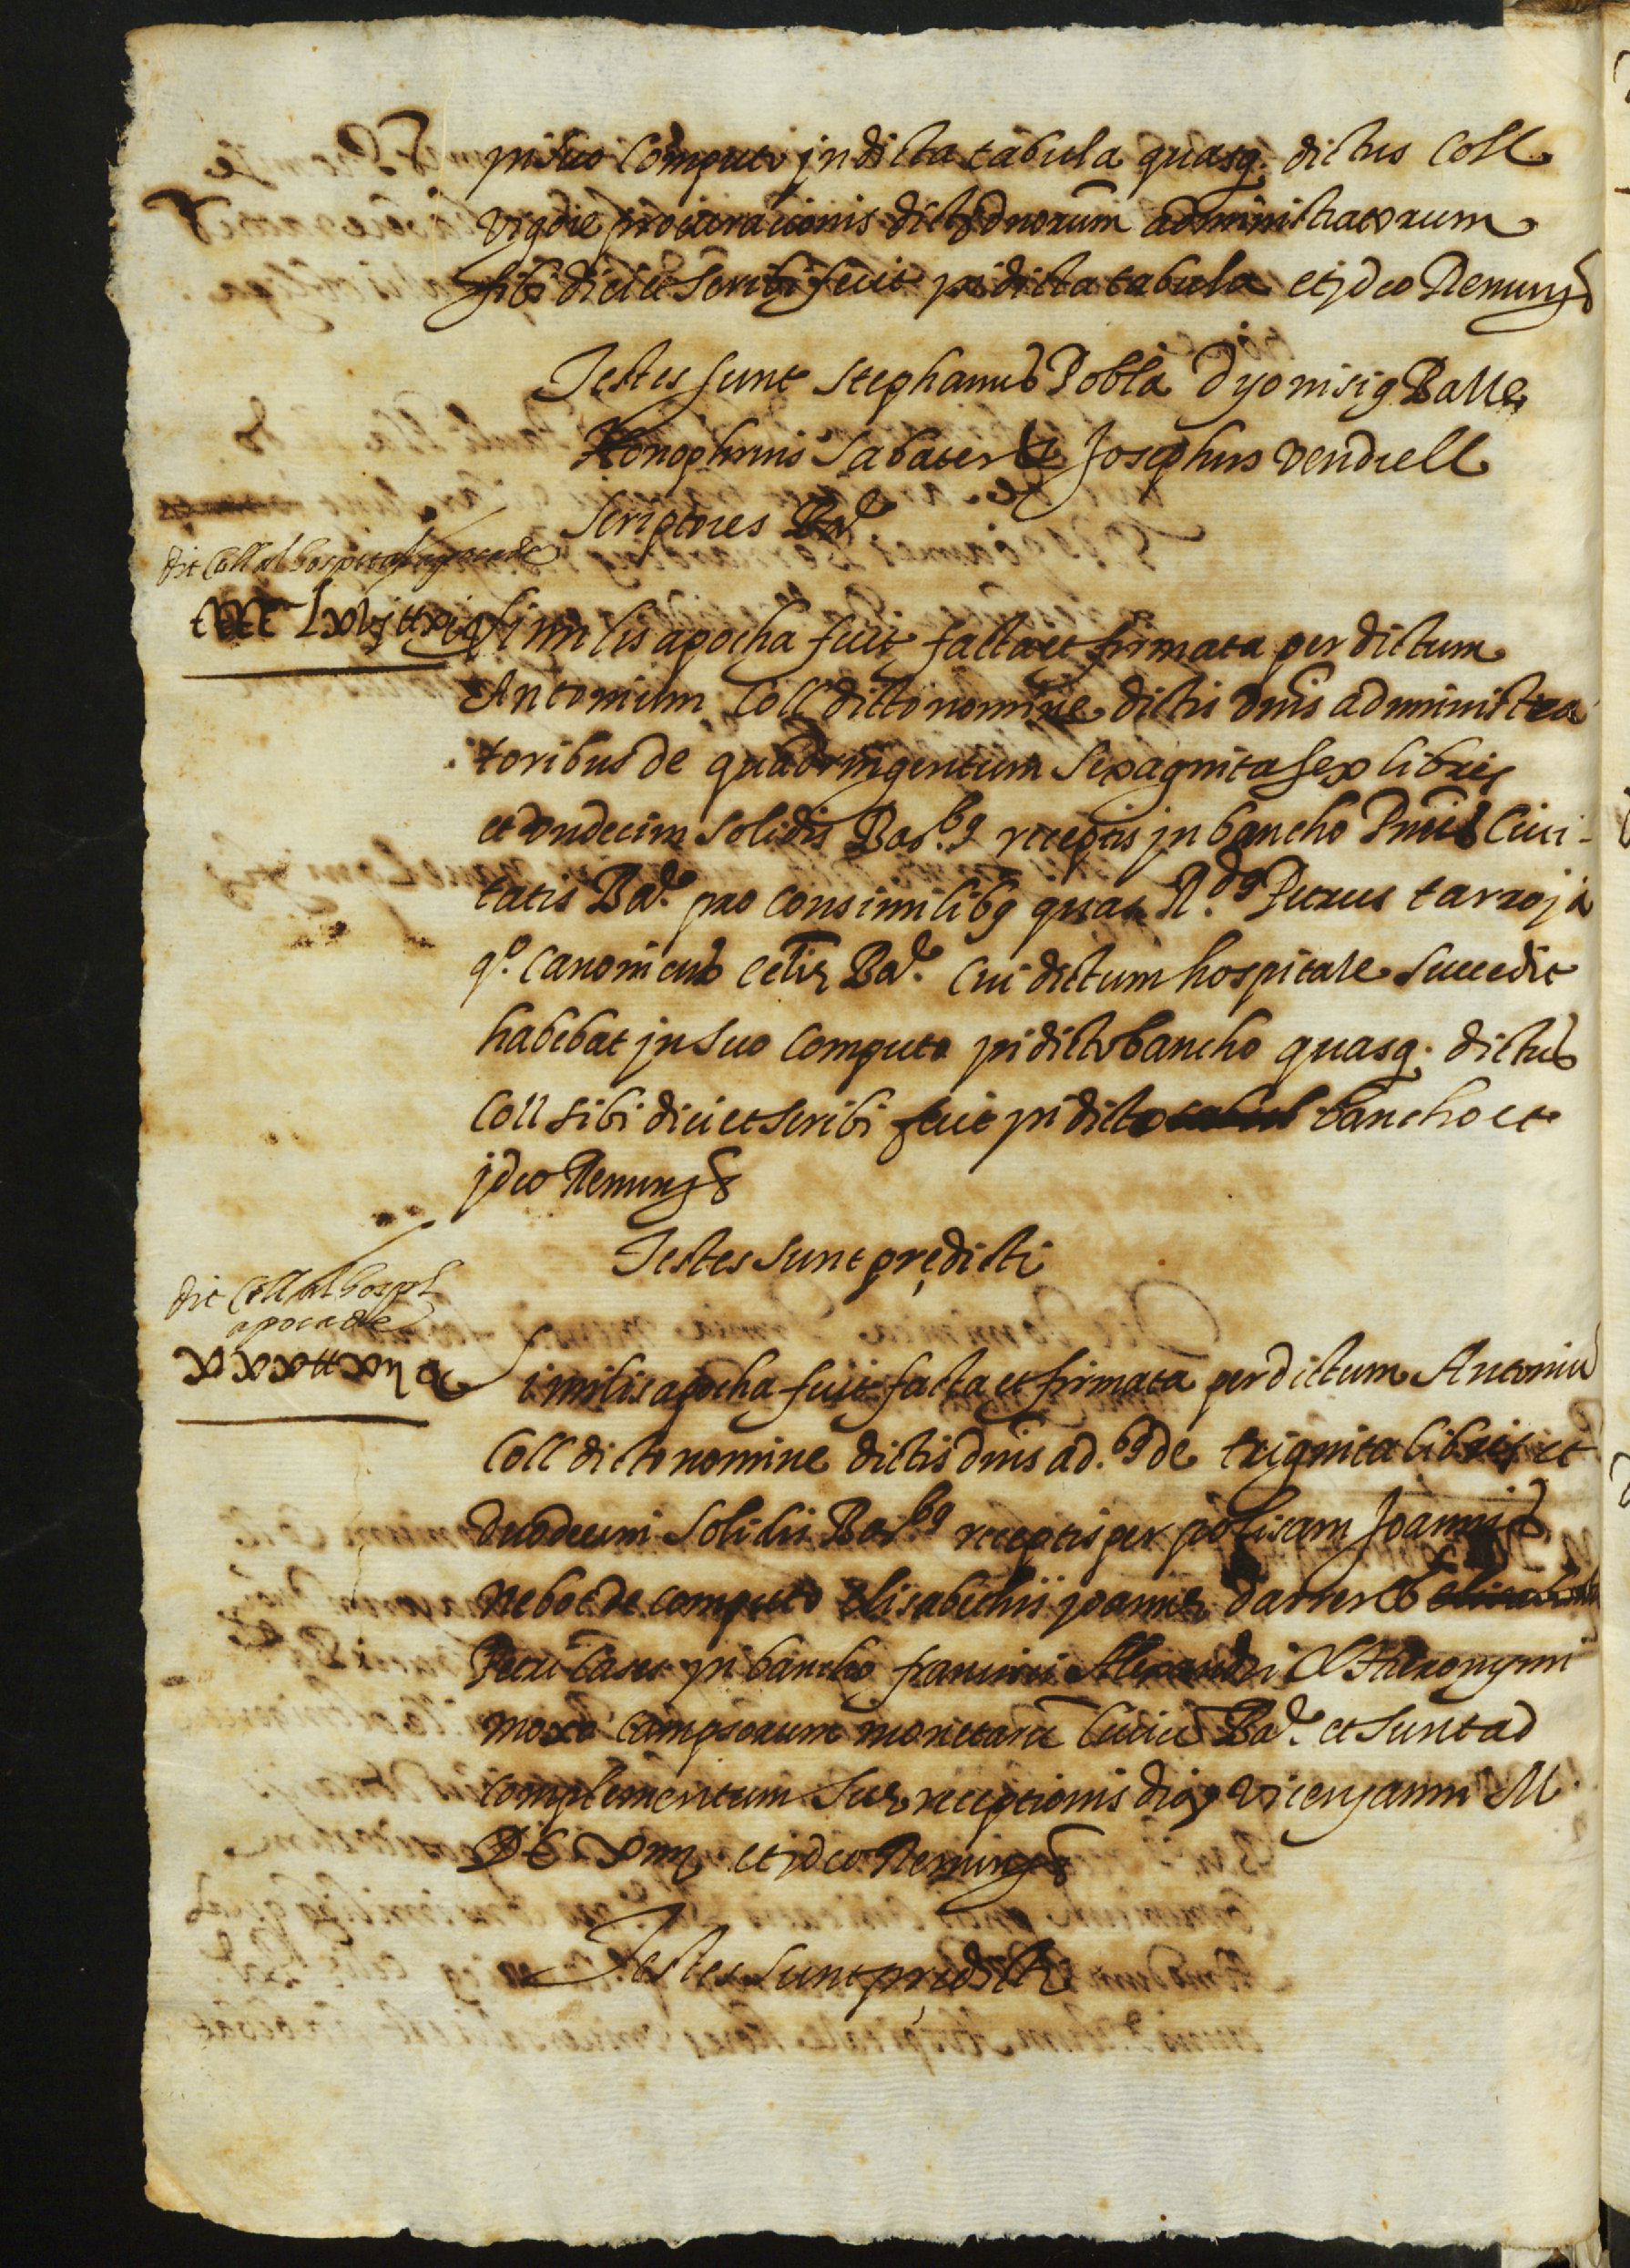 in suo Computo in dicta tabula quasq. dictus Coll
vigore procurationis dictorum dnorum administratorum
sibi dici et scribi fecit in dicta tabula et jdeo Renunts
Testes sunt Stephanus Pobla Dyonisig Balle
Honophrius Sabater & Josephus Vendrell
scriptores Bar.
dit Coll al hospital apoca de
lxvj tt xj s
Similis apocha fuit facta et firmata per dictum
Antonium Coll dicto nomine dictis dnis administra
toribus de quadringentum sexagnita sex libris
et ondecim solidis Bar.bg receptis jn bancho Pntis Ciui-
tatis Bar. pro consimilibg quas R.dg Petrus tarroja
qº. Canonicus Ecclię Bar. Cui dictum hospitale succedit
habebat jn suo Computo in dicto bancho quasq. dictus
Coll sibi dici et scribi fecit in dicto bancho et
jdeo Renunts
Testes sunt prędicti
dit Coll al hospl
apoca de
xxxtt xij s
Similis apocha fuit facta et firmata per dictum Antoniu
Coll dicto nomine dictis dnis ad.bg de trignita libris et
duodecim solidis Bar.bg receptis per polisam Joannis
Nebot de computo Elisabethis Joannę darrer &
Petri Cases in bancho francisci Alexandri & Hieronymi
moxo campsorum monetarū Ciuitū Bar. et sunt ad
complementum suę receptionis dicti vicenjanni M
DC xiiij et jdeo Renunts
Testes sunt prędicti